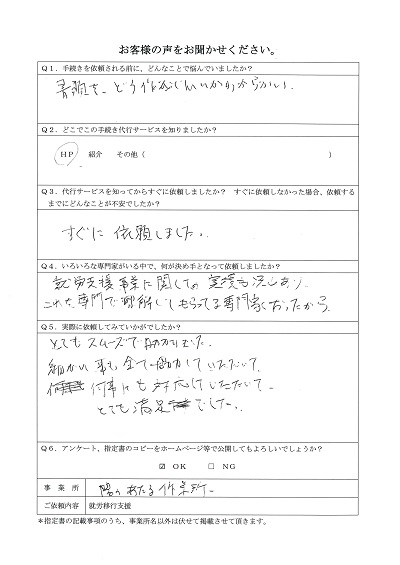 お客様の声をお聞かせください。
Q1．手続きを依頼される前に、どんなことで悩んでいましたか？
書類を、どう作ればいいかわからない。
Q2．どこでこの手続き代行サービスを知りましたか？
HP 紹介 その他（ ）
Q3．代行サービスを知ってからすぐに依頼しましたか？ すぐに依頼しなかった場合、依頼する
までにどんなことが不安でしたか？
すぐに依頼しました。
Q4．いろいろな専門家がいる中で、何が決め手となって依頼しましたか？
就労支援事業に関しての実績も沢山あり
専門で してもらってる専門家だったから。
Q5．実際に依頼してみていかがでしたか？
とてもスムーズで助かりました。
細かい事も全て していただいて、
何事にも対応していただいて
とても満足でした。
Q6．アンケート、指定書のコピーをホームページ等で公開してもよろしいでしょうか？
☑ OK ☐ NG
事業所 陽のあたる作業所
ご依頼内容 就労移行支援
＊指定書の記載事項のうち、事業所名以外は伏せて掲載させて頂きます。